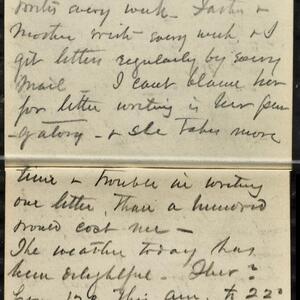 writes every week - Father &
Mother write every week & I
get letters regularly by every
mail - I can't blame her
for letter writing is her pur
-gatory - & she takes more
time & trouble in writing
one letter, than a hundred
would cost me -
The weather today has
been delightful - Ther:
this am & 22°